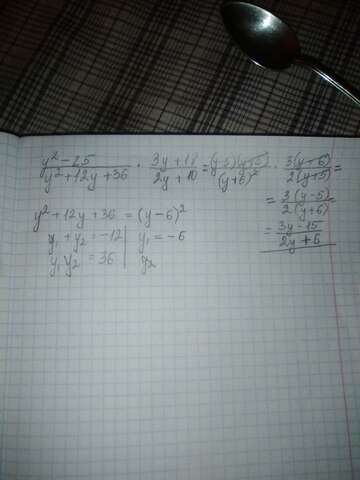 (y² − 25)/(y² + 12y + 36) · (3y + 18)/(2y + 10) = ((y−5)(y+5))/(y+6)² · (3(y+6))/(2(y+5)) =
= (3(y−5))/(2(y+6))
= (3y − 15)/(2y + 6)
y² + 12y + 36 = (y − 6)²
y₁ + y₂ = −12 | y₁ = −6
y₁ y₂ = 36 | y₂